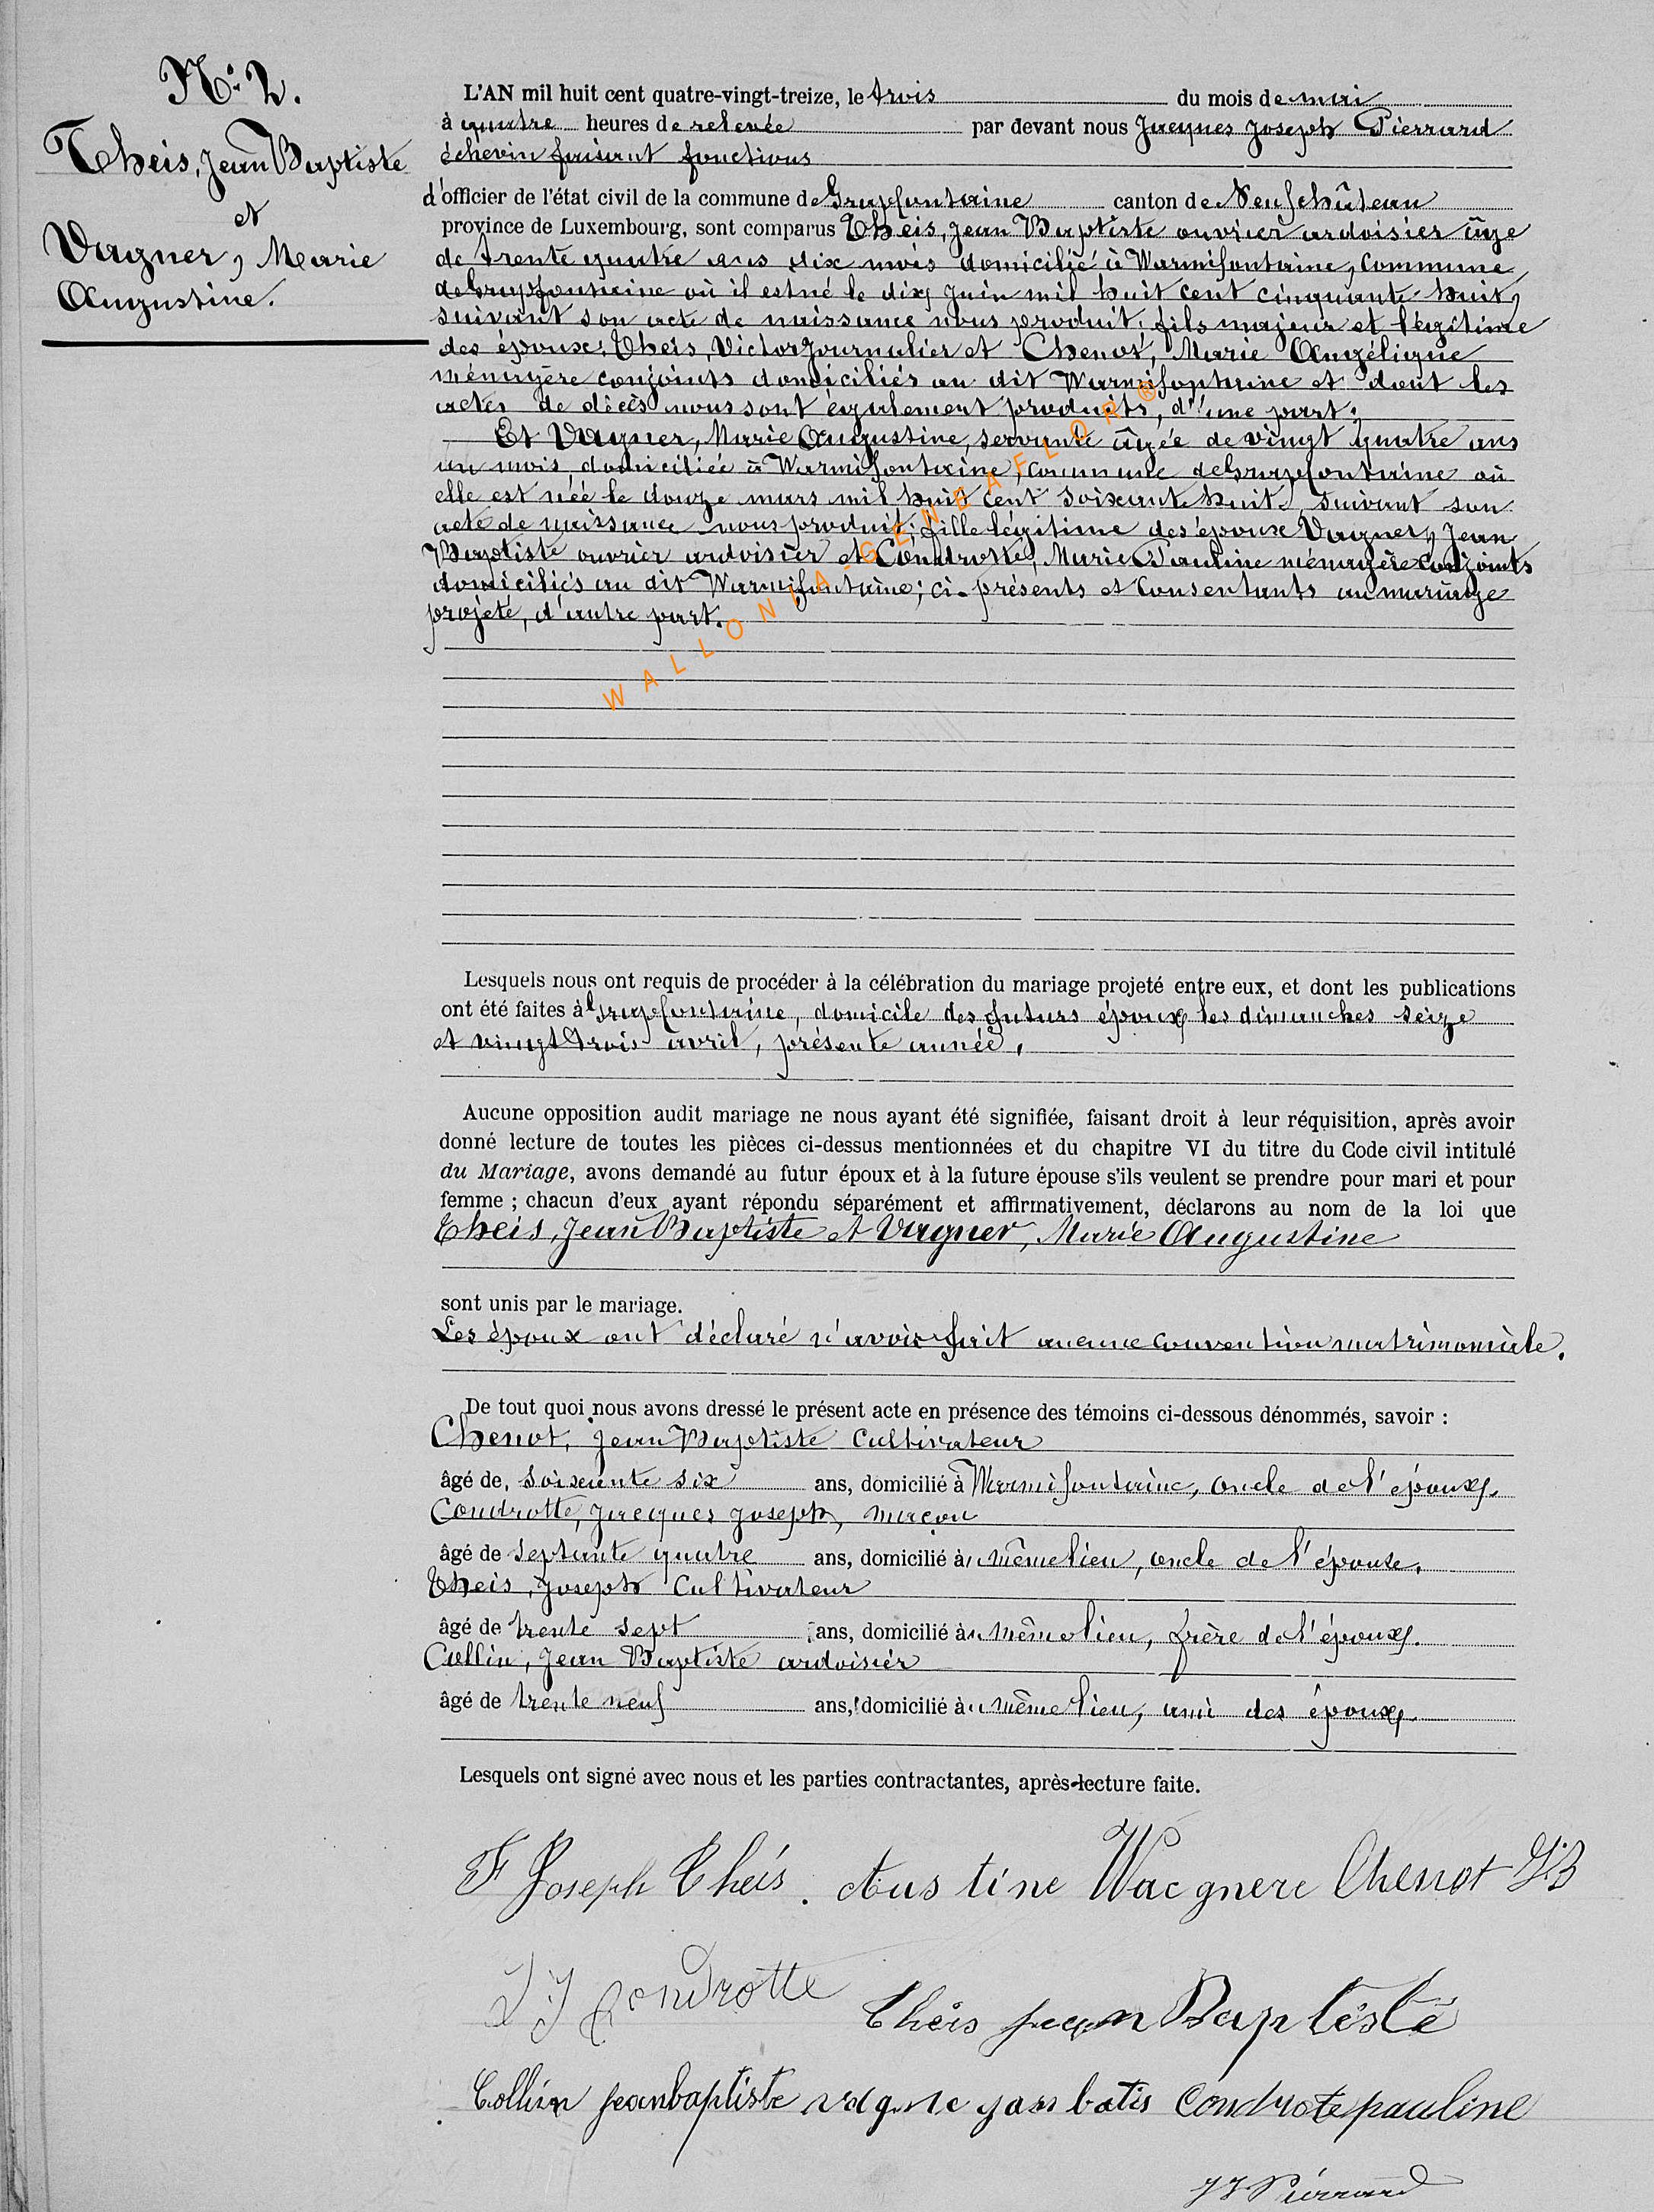 N° 2.
Theis, Jean Baptiste
et
Vagner, Marie
Augustine.
L'AN mil huit cent quatre-vingt-treize, le trois du mois de mai
à quatre heures de relevée par devant nous Jacques Joseph Pierrard
échevin faisant fonctions
d'officier de l'état civil de la commune de Grapfontaine canton de Neufchâteau
province de Luxembourg, sont comparus Theis, Jean Baptiste ouvrier ardoisier âge
de trente quatre ans dix mois domicilié à Warmifontaine, commune
de Grapfontaine où il est né le dix juin mil huit cent cinquante huit,
suivant son acte de naissance nous produit; fils majeur et légitime
des époux: Theis, Victor journalier et Chenot, Marie Angélique
ménagère conjoints domiciliés au dit Warmifontaine et dont les
actes de décès nous sont également produits, d'une part;
Et Vagner, Marie Augustine, servante âgée de vingt quatre ans
un mois, domiciliée à Warmifontaine, commune de Grapfontaine où
elle est née le douze mars mil huit cent soixante huit, suivant son
acte de naissance nous produit; fille légitime des époux Vagner, Jean
Baptiste ouvrier ardoisier et Condrotte, Marie Pauline ménagère conjoints
domiciliés au dit Warmifontaine; ci-présents et consentants au mariage
projeté, d'autre part.
WALLONIA-GENEAFLOR ®
Lesquels nous ont requis de procéder à la célébration du mariage projeté entre eux, et dont les publications
ont été faites à Grapfontaine, domicile des futurs époux les dimanches seize
et vingt trois avril, présente année.
Aucune opposition audit mariage ne nous ayant été signifiée, faisant droit à leur réquisition, après avoir
donné lecture de toutes les pièces ci-dessus mentionnées et du chapitre VI du titre du Code civil intitulé
du Mariage, avons demandé au futur époux et à la future épouse s'ils veulent se prendre pour mari et pour
femme ; chacun d'eux ayant répondu séparément et affirmativement, déclarons au nom de la loi que
Theis, Jean Baptiste et Vagner, Marie Augustine
sont unis par le mariage.
Les époux ont déclaré n'avoir fait aucune convention matrimoniale.
De tout quoi nous avons dressé le présent acte en présence des témoins ci-dessous dénommés, savoir :
Chenot, Jean Baptiste Cultivateur
âgé de soixante six ans, domicilié à Warmifontaine, oncle de l'époux.
Condrotte, Jacques Joseph, maçon
âgé de septante quatre ans, domicilié au même lieu, oncle de l'épouse.
Theis, Joseph Cultivateur
âgé de trente sept ans, domicilié au même lieu, frère de l'époux.
Collin, Jean Baptiste ardoisier
âgé de trente neuf ans, domicilié au même lieu, ami des époux.
Lesquels ont signé avec nous et les parties contractantes, après lecture faite.
F Joseph Théis. Austine Wacgnere Chenot JB
J J Condrotte Théis Jean Baptiste
Collin jeanbaptiste vagne jan batis Condrote pauline
JJ Pierrard